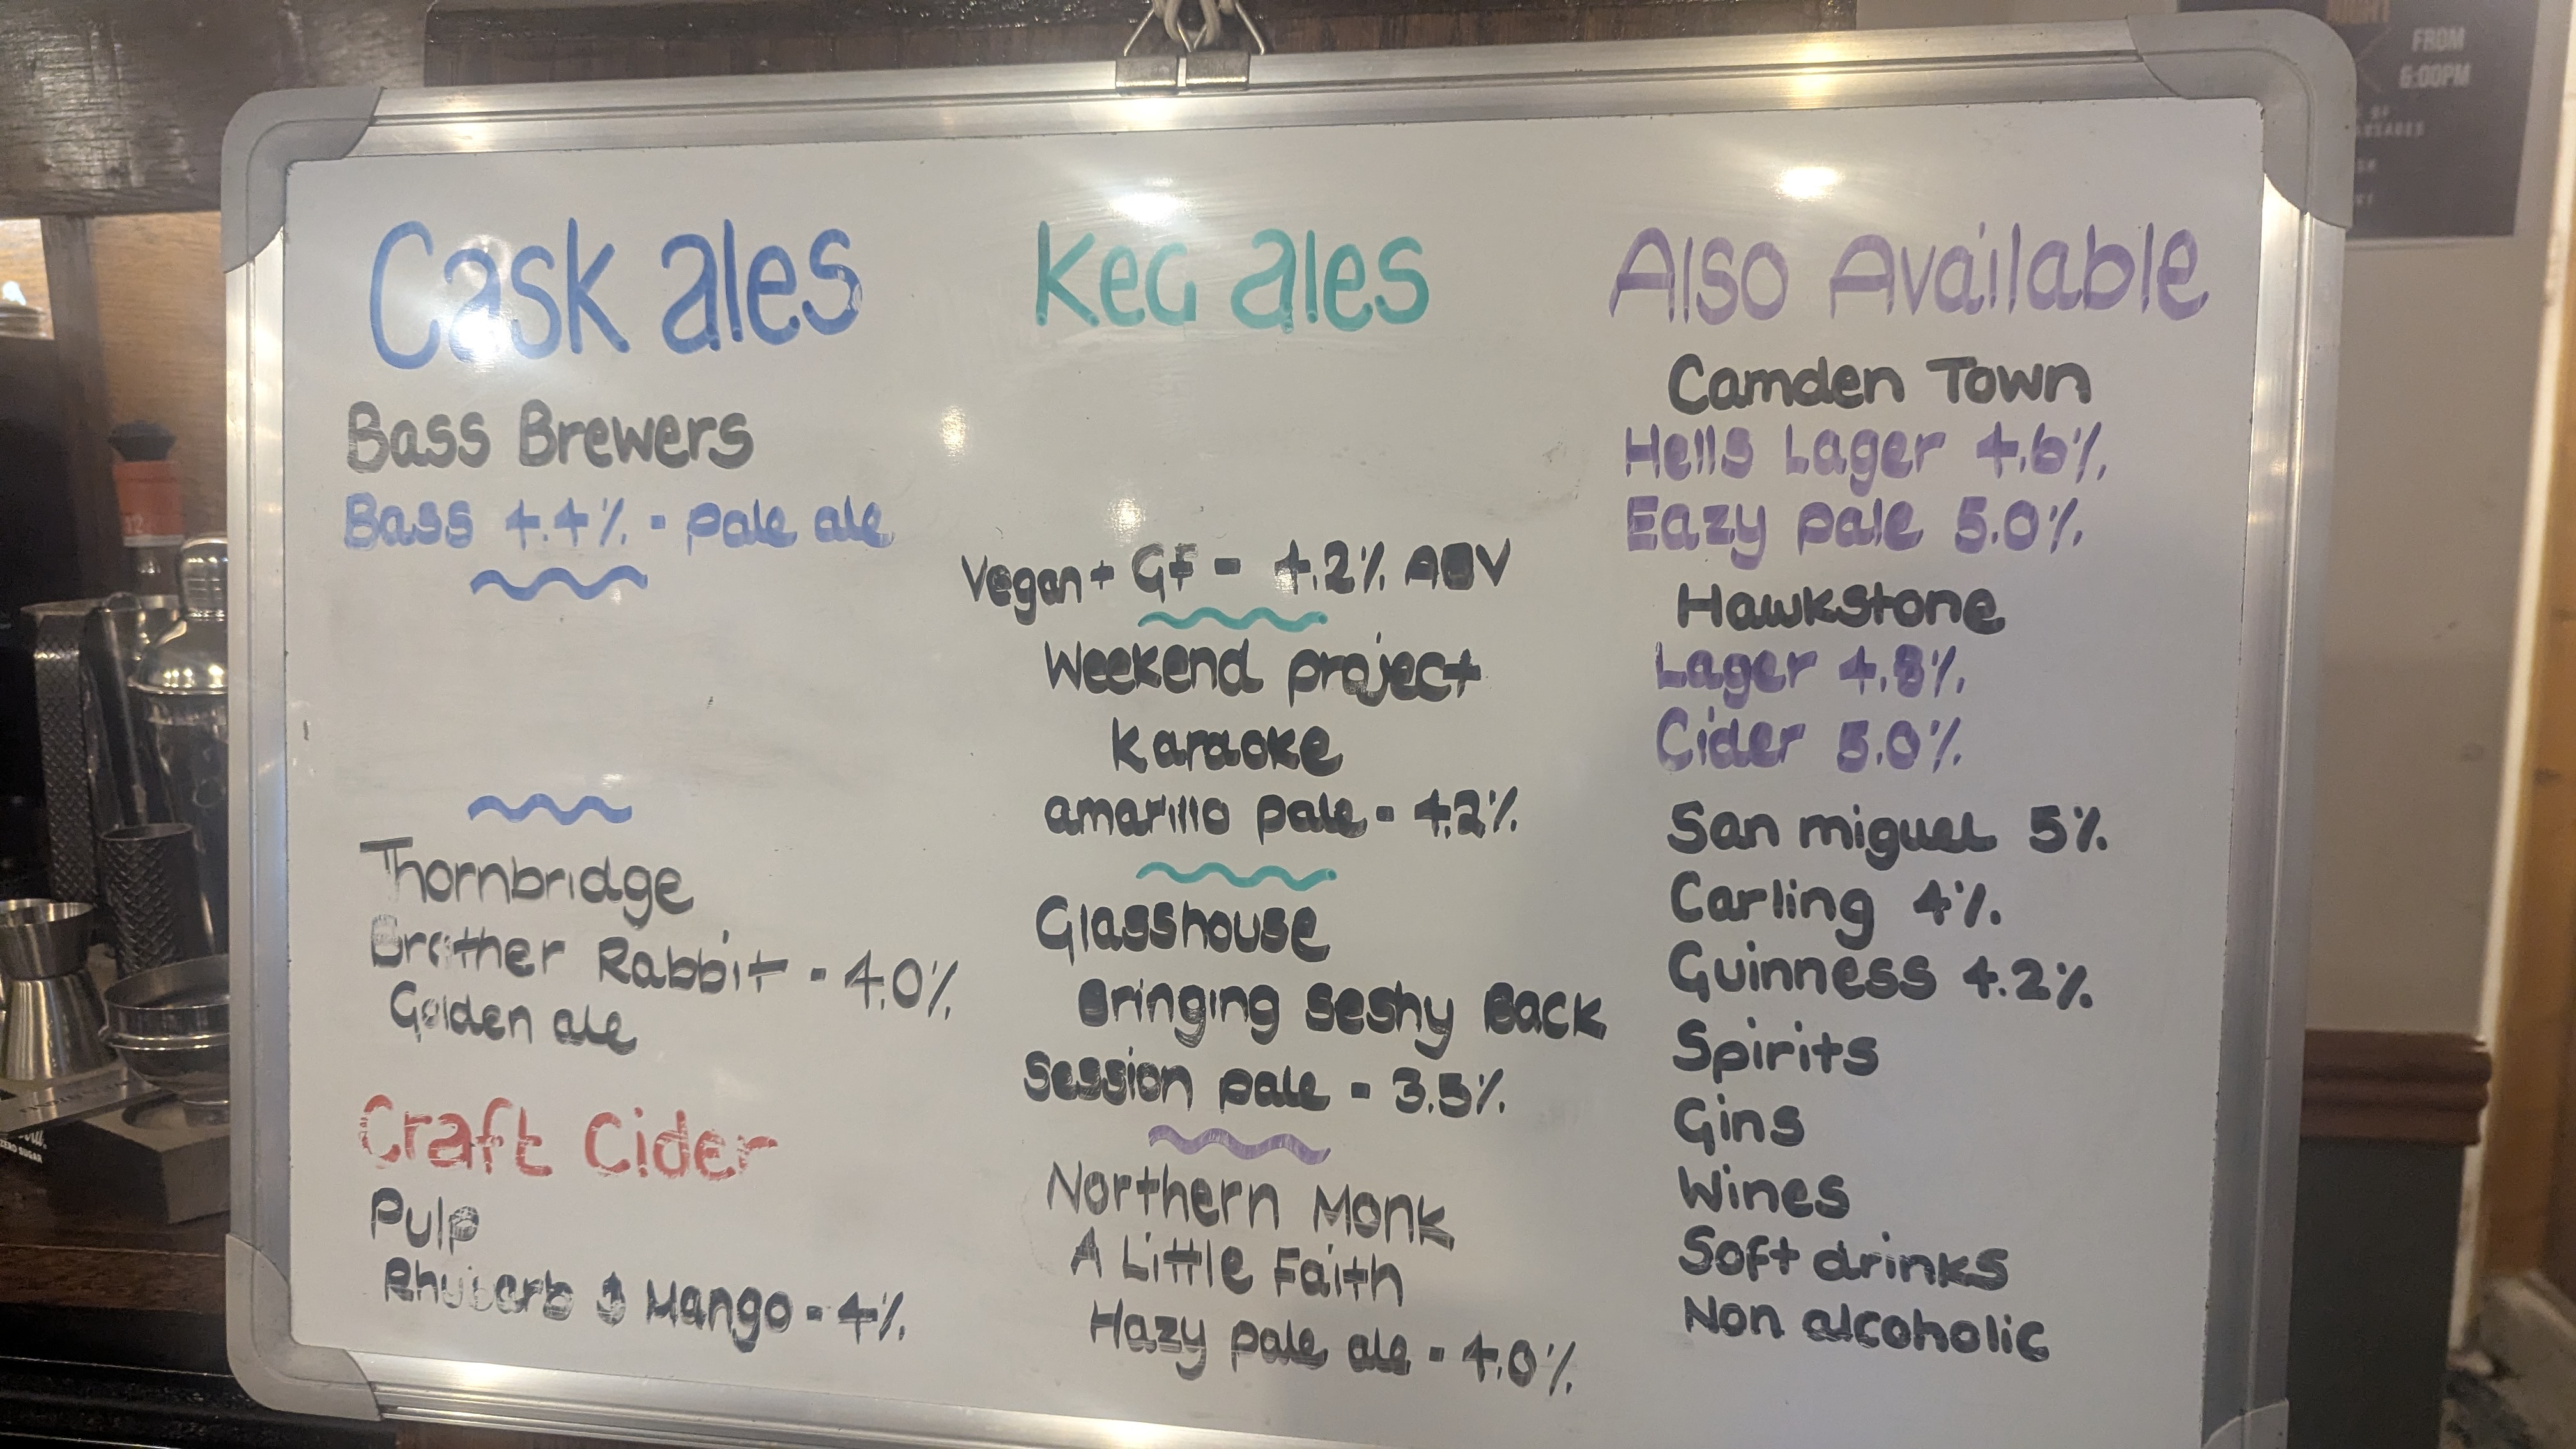 Cask ales
Bass Brewers
Bass 4.4% - pale ale
Thornbridge
Brother Rabbit - 4.0%
Golden ale
Craft Cider
Pulp
Rhubarb & Mango - 4%
Keg ales
Vegan + GF - 4.2% ABV
Weekend project
Karaoke
amarillo pale - 4.2%
Glasshouse
Bringing Seshy Back
Session pale - 3.5%
Northern Monk
A Little Faith
Hazy pale ale - 4.0%
Also Available
Camden Town
Hells Lager 4.6%
Eazy pale 5.0%
Hawkstone
Lager 4.8%
Cider 5.0%
San miguel 5%
Carling 4%
Guinness 4.2%
Spirits
Gins
Wines
Soft drinks
Non alcoholic
FROM
6:00PM
ZERO SUGAR